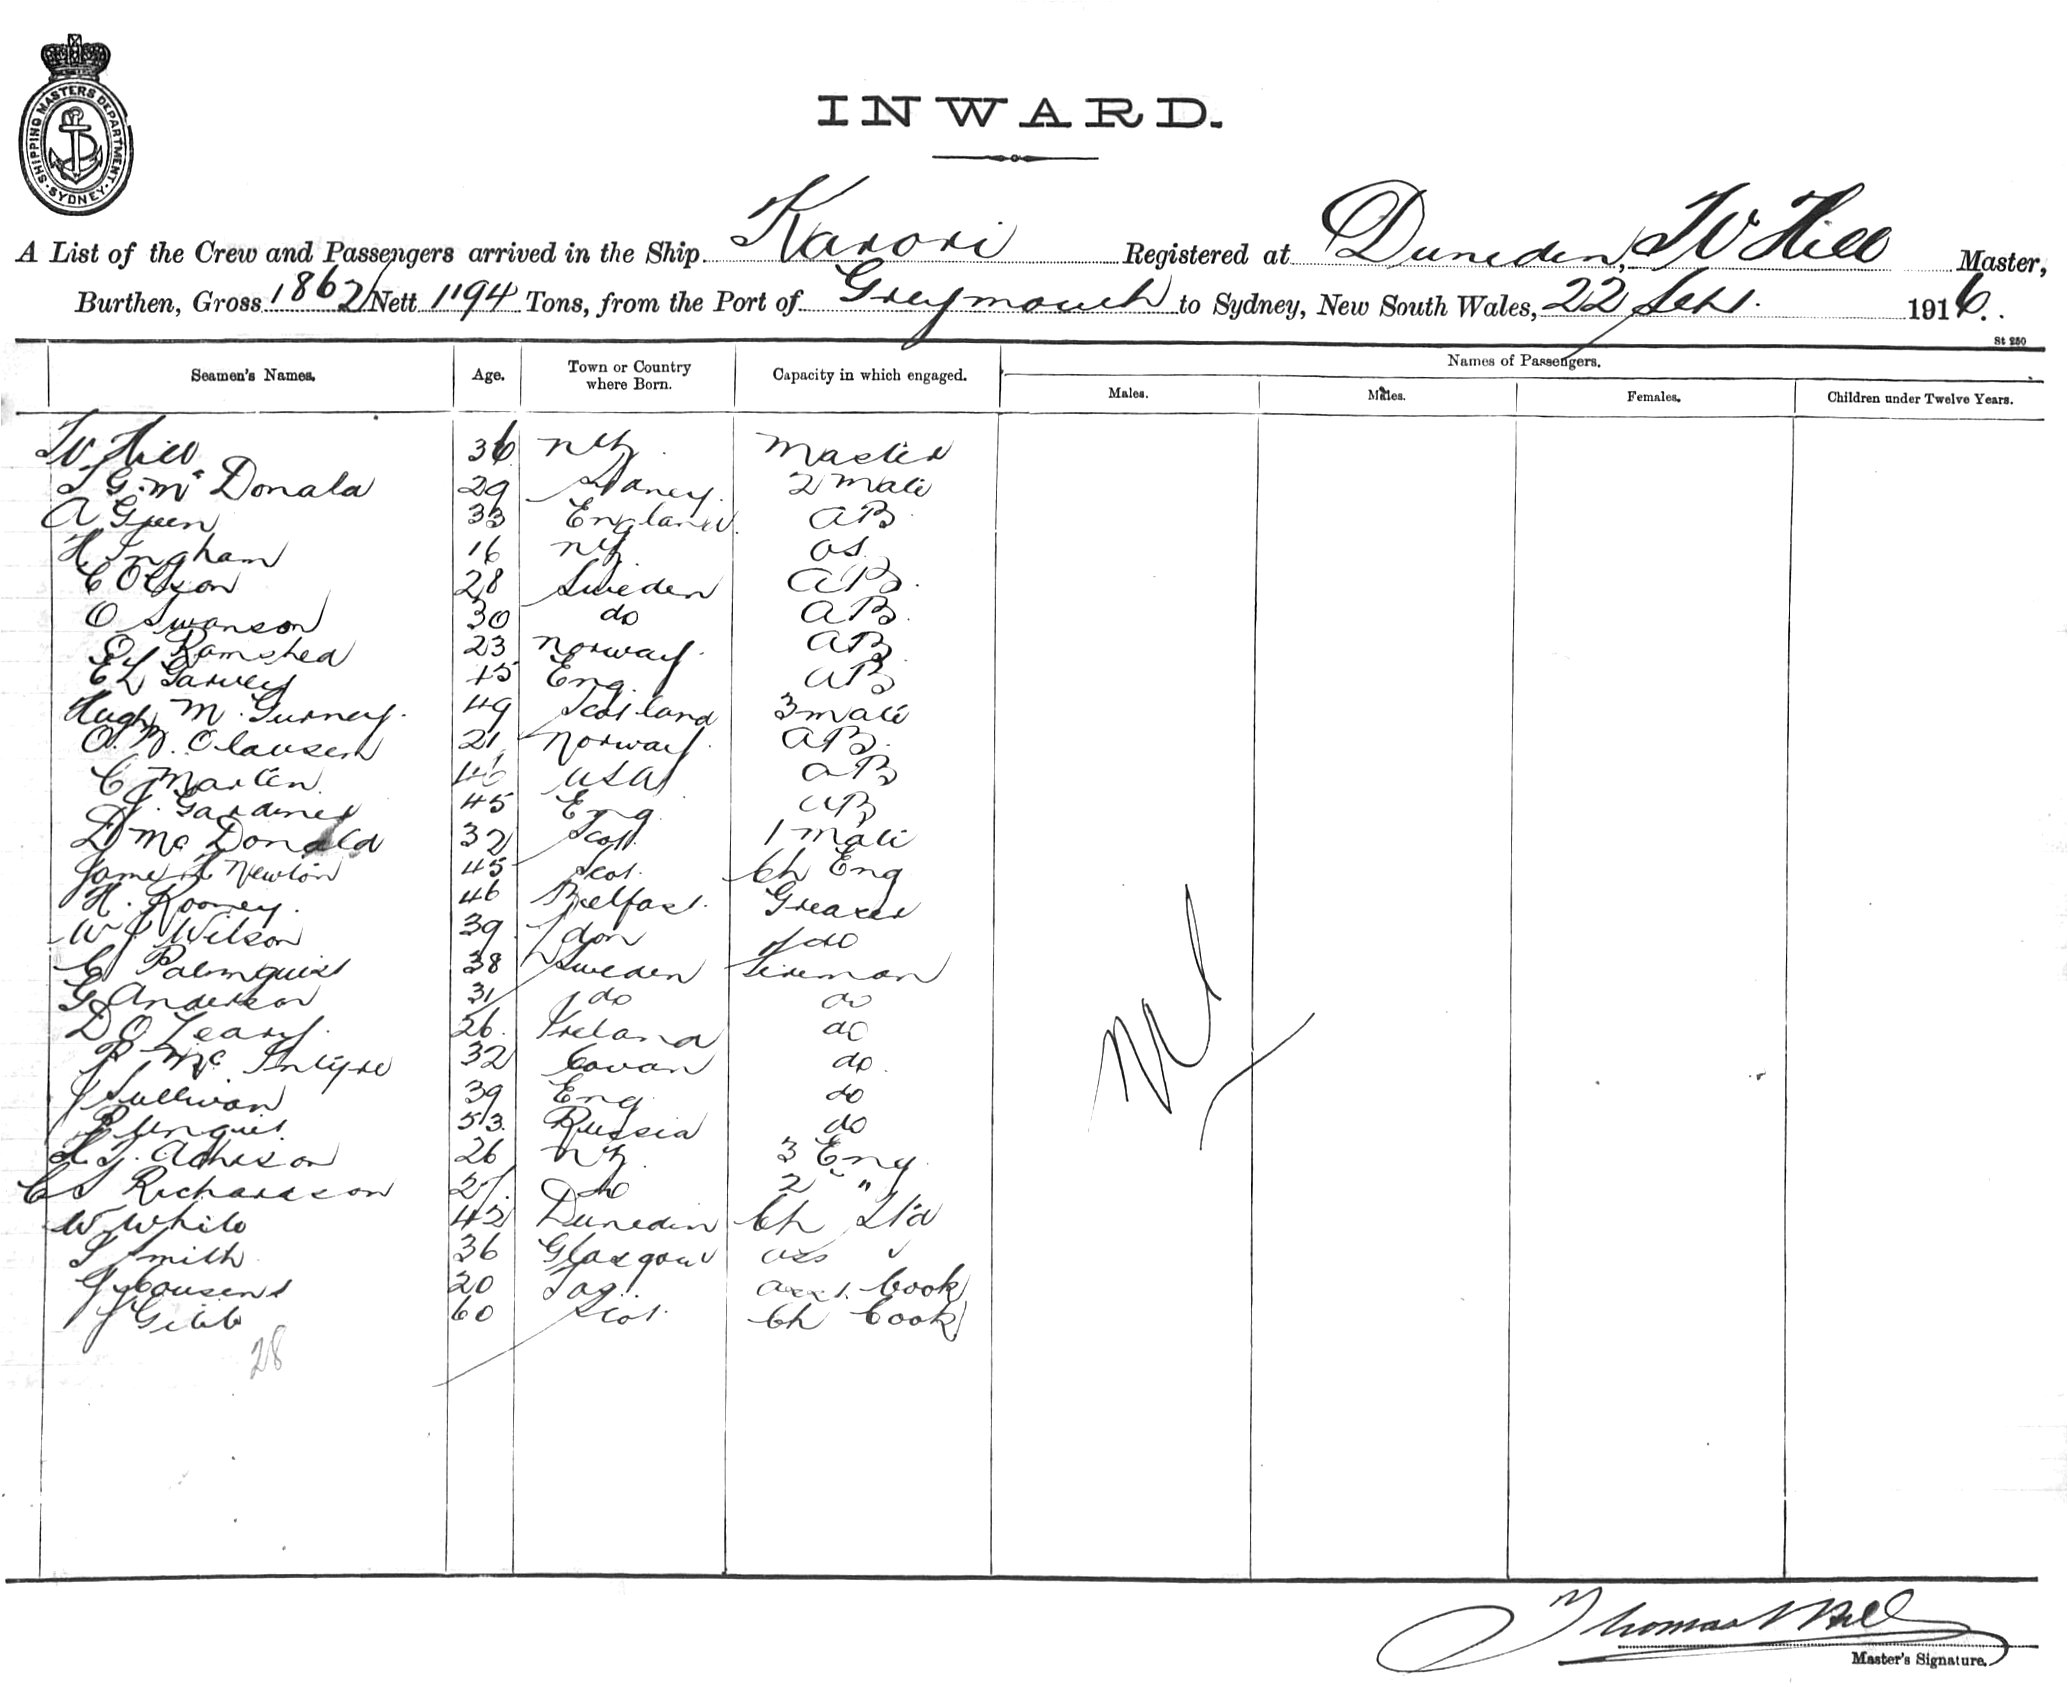 SHIPPING MASTERS DEPARTMENT. SYDNEY
INWARD.
A List of the Crew and Passengers arrived in the Ship Karori Registered at Dunedin, W Hill Master,
Burthen, Gross 1862 Nett 1194 Tons, from the Port of Greymouth to Sydney, New South Wales, 22 Sept. 1916.
St 250
Seamen's Names. Age. Town or Country where Born. Capacity in which engaged. Names of Passengers.
Males. Males. Females. Children under Twelve Years.
W Hill 36 NZ Master
G. Mc Donald 29 Sydney 2 Mate
A Green 33 England AB
H Ingham 16 NZ OS
C Olsson 28 Sweden AB
O Swanson 30 do AB
Ramshed 23 Norway AB
E L Garvey Eng. AB
Hugh M. Gurney 49 Scotland 3 Mate
O. Clausen 21 Norway AB
C Martin 46 USA AB
J. Gardiner 45 Eng AB
D Mc Donald 32 Scot 1 Mate
James Newton 45 Scot. Ch Eng
H. Rooney 46 Belfast Greaser
W J Wilson 39 Ldon do
C Palmquist 38 Sweden Fireman
G Anderson 31 do do
D O Leary 26 Ireland do
P Mc Intyre 32 Cavan do
J Sullivan 39 Eng do
P Unquit 53 Russia do
Acheson 26 NZ 3 Eng
C S Richardson 27 do 2 "
W White 45 Dunedin Ch Std
S Smith 36 Glasgow ass
G Cousens 20 Tas. Asst. Cook
J Gibb 60 Scot. Ch Cook
28
Nil
Thomas W Hill
Master's Signature.